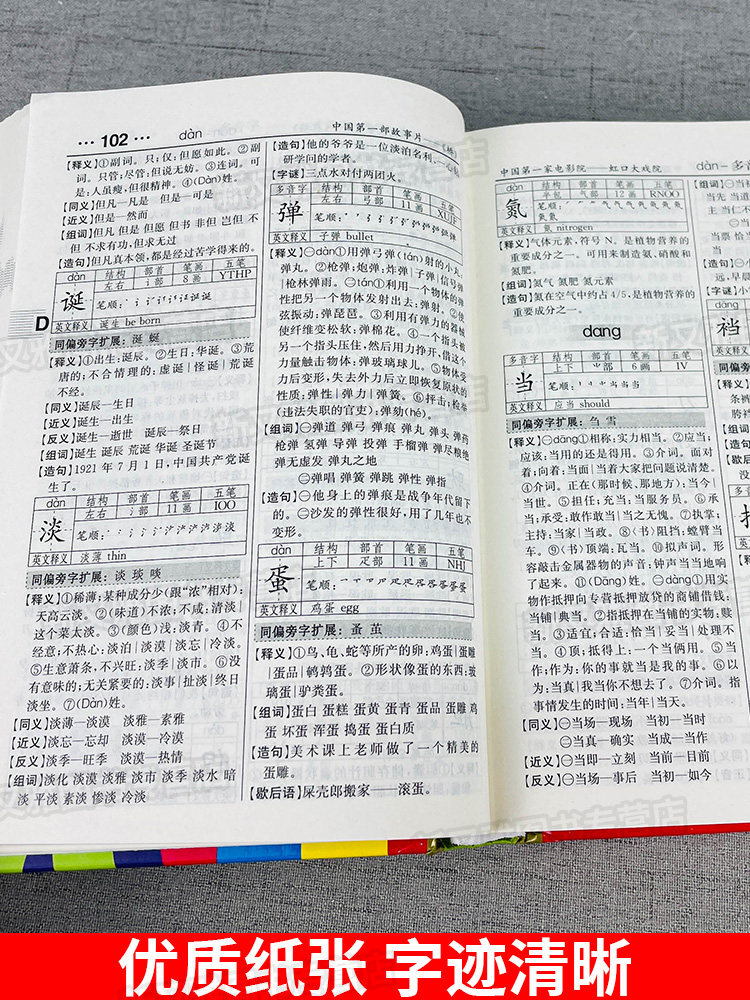 ··· 102 ··· dàn
【释义】①副词。只;仅:但愿如此。②副
词。只管;尽管:但说无妨。③连词。可
是:人虽瘦,但很精神。④(Dàn)姓。
【同义】但凡—凡是 但是—可是
【近义】但是—然而
【组词】但凡 但是 但愿 但书 非但 岂但 不
但 不求有功,但求无过
【造句】但凡真本领,都是经过苦学得来的。
dàn 结构 部首 笔画 五笔
左右 讠部 8画 YTHP
诞 笔顺:
英文释义 诞生 be born
D
同偏旁字扩展:涎 蜒
【释义】①出生:诞辰。②生日:华诞。③荒
唐的;不合情理的:虚诞|怪诞|荒诞
不经。
【同义】诞辰—生日
【近义】诞生—出生
【反义】诞生—逝世 诞辰—祭日
【组词】诞生 诞辰 荒诞 华诞 圣诞节
【造句】1921年7月1日,中国共产党诞
生了。
dàn 结构 部首 笔画 五笔
左右 氵部 11画 IOO
淡 笔顺:
英文释义 淡薄 thin
同偏旁字扩展:谈 琰 啖
【释义】①稀薄;某种成分少(跟“浓”相对):
天高云淡。②(味道)不浓;不咸:清淡|
这个菜太淡。③(颜色)浅:淡青。④不
经意;不热心:淡泊|淡漠|淡忘|冷淡。
⑤生意萧条,不兴旺:淡季|淡市。⑥没
有意味的;无关紧要的:淡事|扯淡|终日
淡坐。⑦(Dàn)姓。
【同义】淡薄—淡漠 淡雅—素雅
【近义】淡忘—忘却 淡漠—冷漠
【反义】淡季—旺季 淡漠—热情
【组词】淡化 淡漠 淡雅 淡市 淡季 淡水 暗
淡 平淡 素淡 惨淡 冷淡
中国第一部故事片
【造句】他的爷爷是一位淡泊名利、一心钻
研学问的学者。
【字谜】三点水对付两团火。
多音字 结构 部首 笔画 五笔
左右 弓部 11画 XUJF
弹 笔顺:
英文释义 子弹 bullet
【释义】㊀dàn①用弹弓弹(tán)射的小丸:
弹丸。②枪弹;炮弹;炸弹|子弹|信号弹
|枪林弹雨。㊁tán①利用一个物体的弹
性把另一个物体发射出去:弹射。②使
弦振动:弹琵琶。③利用有弹力的器械
使纤维变松软:弹棉花。④一个指头被另
一个指头压住,然后用力挣开,借这个
力量触击物体:弹玻璃球儿。⑤物体受
力后变形,失去外力后立即恢复原状的
性质:弹性|弹力|弹簧。⑥抨击;检举
(违法失职的官吏):弹劾(hé)。
【组词】㊀弹道 弹弓 弹痕 弹丸 弹头 弹药
枪弹 氢弹 导弹 投弹 手榴弹 弹尽粮绝
弹无虚发 弹丸之地
㊁弹唱 弹簧 弹跳 弹性 弹指
【造句】㊀他身上的弹痕是战争年代留下
的。㊁沙发的弹性很好,用了几年也不
变形。
dàn 结构 部首 笔画 五笔
上下 疋部 11画 NHJ
蛋 笔顺:
英文释义 鸡蛋 egg
同偏旁字扩展:蚤 茧
【释义】①鸟、龟、蛇等所产的卵:鸡蛋|蛋雕
|蛋品|鹌鹑蛋。②形状像蛋的东西:玻
璃蛋|驴粪蛋。
【组词】蛋白 蛋糕 蛋黄 蛋青 蛋品 蛋雕 鸡
蛋 坏蛋 浑蛋 捣蛋 蛋白质
【造句】美术课上老师做了一个精美的
蛋雕。
【歇后语】屎壳郎搬家——滚蛋。
中国第一家电影院——虹口大戏院
dàn 结构 部首 笔画 五笔
半包 气部 12画 RNOO
氮 笔顺:
英文释义 氮 nitrogen
【释义】气体元素,符号N。是植物营养的
重要成分之一。可用来制造氨、硝酸和
氮肥。
【组词】氮气 氮肥 氮元素
【造句】氮在空气中约占4/5,是植物营养的
重要成分之一。
dang
多音字 结构 部首 笔画 五笔
上下 6画 IV
当 笔顺:
英文释义 应当 should
同偏旁字扩展:刍 雪
【释义】㊀dāng①相称:实力相当。②应当;
应该:当用的还是得用。③介词。面对
着;向着:当面|当着大家把问题说清楚。
④介词。正在(那时候、那地方):当今|
当世。⑤担任;充当:当服务员。⑥承
当;承受:敢作敢当|当之无愧。⑦执掌;
主持:当家|当政。⑧〈书〉阻挡:螳臂当
车。⑨〈书〉顶端:瓦当。⑩拟声词。形
容敲击金属器物的声音:钟声当当地响
了起来。⑪(Dāng)姓。㊁dàng①用实
物作抵押向专营抵押放贷的商铺借钱:
当铺|典当。②指抵押在当铺的实物:赎
当。③适宜;合适:恰当|妥当|处理不
当。④顶;抵得上:一个当俩用。⑤当
作;作为:你的事就当是我的事。⑥以
为:当真|我当你不想去了。⑦介词。指
事情发生的时间:当年|当天。
【同义】㊀当场—现场 当初—当时
㊁当真—确实 当成—当作
【近义】㊀当即—立刻 当前—目前
【反义】㊀当场—事后 当初—如今
dàn - 多音
【组词】
当先
【造句】
【字谜】
裆
优质纸张 字迹清晰